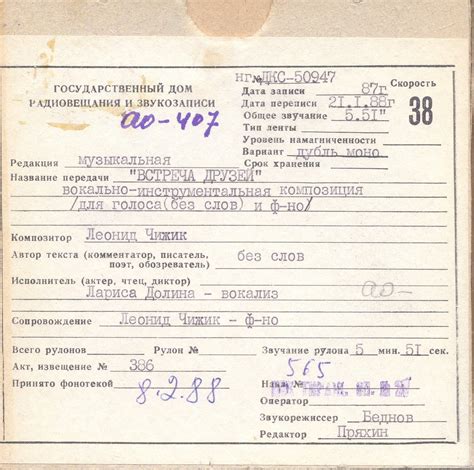 НГ № ДКС-50947
ГОСУДАРСТВЕННЫЙ ДОМ
РАДИОВЕЩАНИЯ И ЗВУКОЗАПИСИ
ао-407
Дата записи 87г
Дата переписи 21.I.88г
Общее звучание 5.51"
Тип ленты
Уровень намагниченности
Вариант дубль моно
Срок хранения
Скорость
38
Редакция музыкальная
Название передачи "ВСТРЕЧА ДРУЗЕЙ"
вокально-инструментальная композиция
/для голоса(без слов) и ф-но/
Композитор Леонид Чижик
Автор текста (комментатор, писатель, без слов
поэт, обозреватель)
Исполнитель (актер, чтец, диктор)
Лариса Долина - вокализ ао-
Сопровождение Леонид Чижик - ф-но
Всего рулонов Рулон № Звучание рулона 5 мин. 51 сек.
Акт, извещение № 386 565
Принято фонотекой 8.2.88
Оператор
Звукорежиссер Беднов
Редактор Пряхин